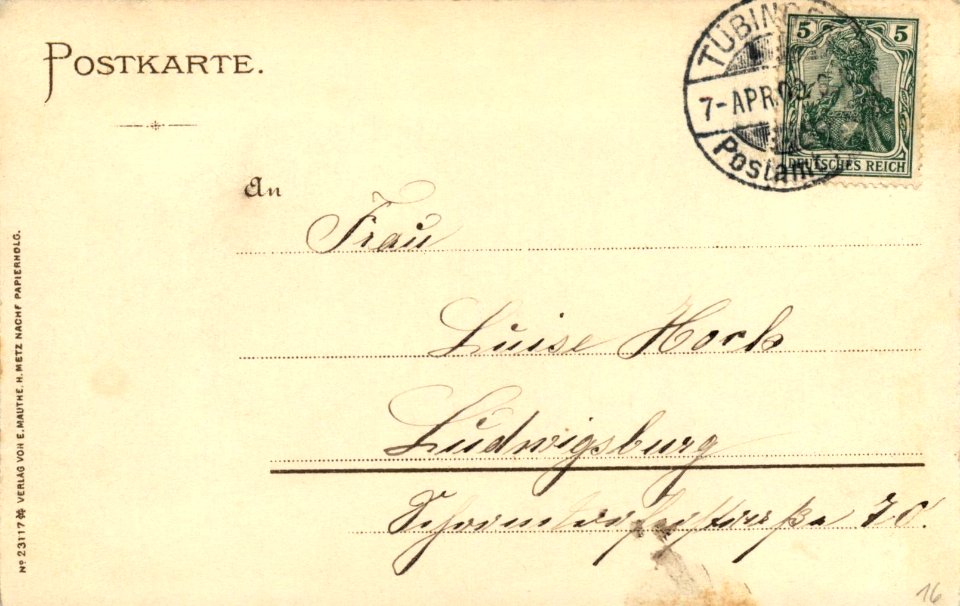 POSTKARTE.
TÜBINGEN
7-APR.
Postamt
5 5
DEUTSCHES REICH
An
Frau
Luise Hock
Ludwigsburg
Schorndorferstrasse 70.
No 231117 VERLAG VON E. MAUTHE. H. METZ NACHF PAPIERHDLG.
16